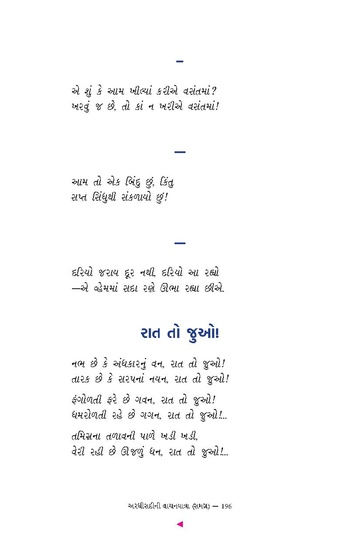 –
એ શું કે આમ ખીલ્યાં કરીએ વસંતમાં?
ખરવું જ છે, તો કાં ન ખરીએ વસંતમાં!
–
આમ તો એક બિંદુ છું, કિંતુ
સપ્ત સિંધુથી સંકળાયો છું!
–
દરિયો જરાય દૂર નથી, દરિયો આ રહ્યો
—એ વ્હેમમાં સદા રણે ઊભા રહ્યા છીએ.
રાત તો જુઓ!
નભ છે કે અંધકારનું વન, રાત તો જુઓ!
તારક છે કે સરપનાં નયન, રાત તો જુઓ!
ફંગોળતી ફરે છે ગવન, રાત તો જુઓ!
ધમરોળતી રહે છે ગગન, રાત તો જુઓ!...
તમિસ્રના તળાવની પાળે ખડી ખડી,
વેરી રહી છે ઊજળું ધન, રાત તો જુઓ!...
અરધીસદીની વાચનયાત્રા (સમગ્ર) — 196